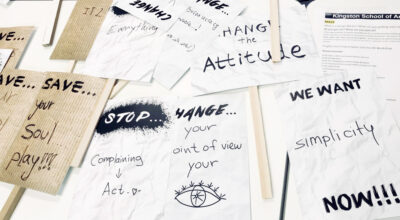 SAVE...
Everything
HANG
the
Attitude
Kingston School of A
SAVE...
SAVE...
your
Soul
play!!!
STOP...
Complaining
↓
Act.
HANGE...
your
oint of view
your
WE WANT
simplicity
NOW!!!